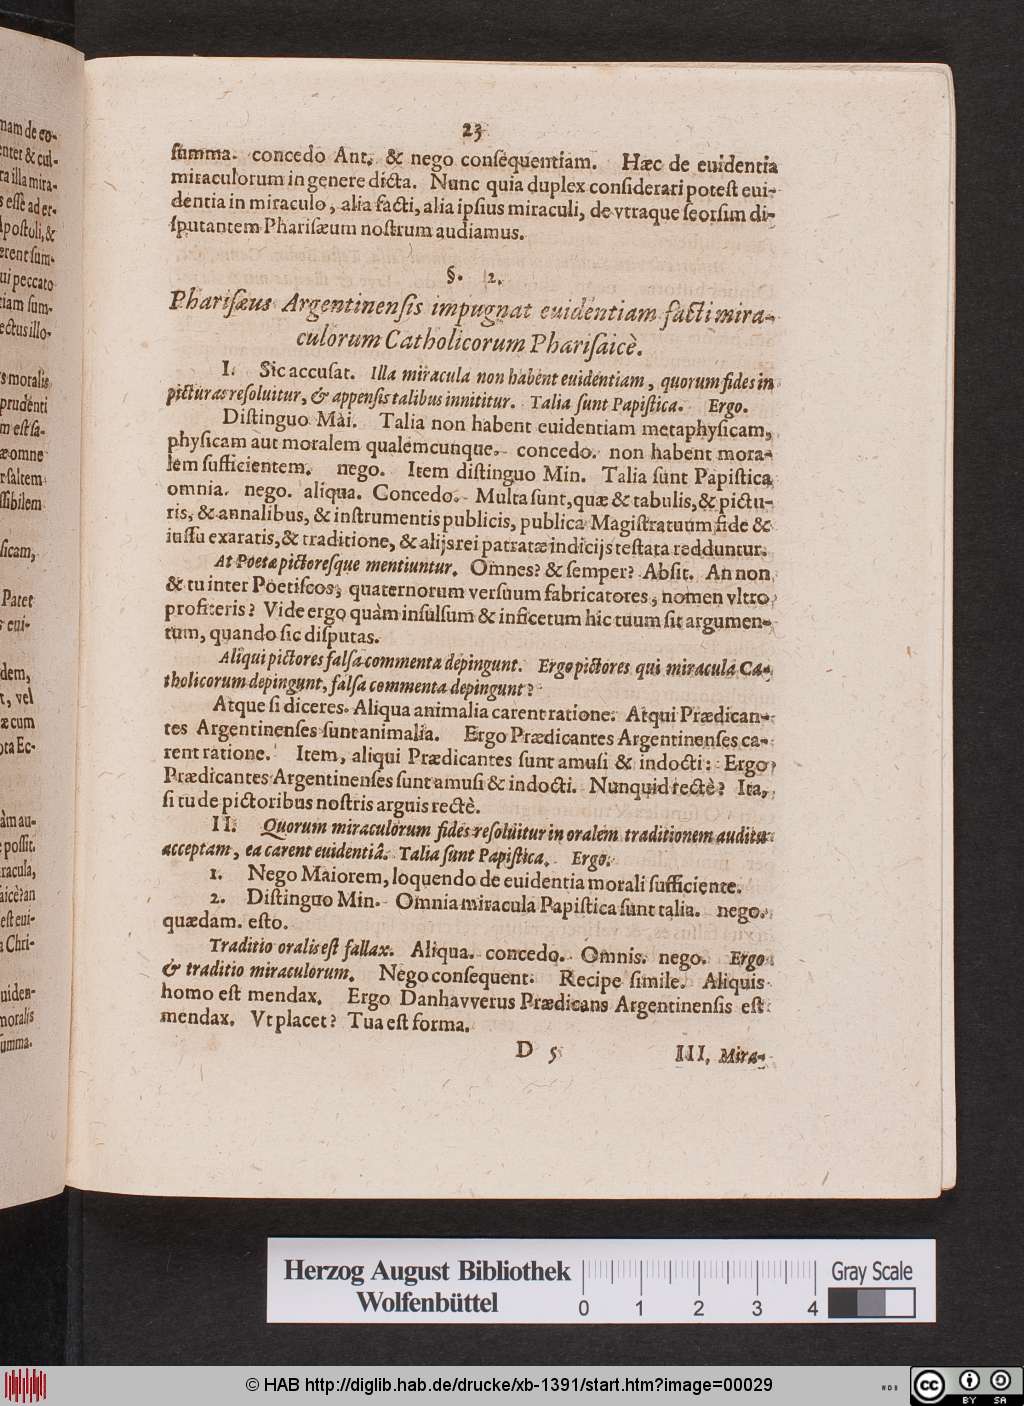 nam de co-
enter & cul-
ra illa mira-
s esse ad er-
Apostoli, &
erent sum-
ui peccato
tiam sum-
ectus illo-
s moralis
prudenti
m est sa-
æ omne
r saltem
ssibilem
sicam,
Patet
s eui-
dem,
t, vel
æ cum
ota Ec-
àm au-
e possit.
racula,
aicè? an
est eui-
a Chri-
uiden-
moralis
summa.
23
summa. concedo Ant. & nego consequentiam. Hæc de euidentia
miraculorum in genere dicta. Nunc quia duplex considerari potest eui-
dentia in miraculo, alia facti, alia ipsius miraculi, de vtraque seorsim di-
sputantem Pharisæum nostrum audiamus.
§. 2.
Pharisæus Argentinensis impugnat euidentiam facti mira-
culorum Catholicorum Pharisaicè.
I. Sic accusat. Illa miracula non habent euidentiam, quorum fides in
picturas resoluitur, & appensis talibus innititur. Talia sunt Papistica. Ergo.
Distinguo Mai. Talia non habent euidentiam metaphysicam,
physicam aut moralem qualemcunque. concedo. non habent mora-
lem sufficientem. nego. Item distinguo Min. Talia sunt Papistica
omnia. nego. aliqua. Concedo. Multa sunt, quæ & tabulis, & pictu-
ris, & annalibus, & instrumentis publicis, publica Magistratuum fide &
iussu exaratis, & traditione, & alijs rei patratæ indicijs testata redduntur.
At Poetæ pictoresque mentiuntur. Omnes? & semper? Absit. An non
& tu inter Poëtiscos, quaternorum versuum fabricatores, nomen vltro
profiteris? Vide ergo quàm insulsum & inficetum hic tuum sit argumen-
tum, quando sic disputas.
Aliqui pictores falsa commenta depingunt. Ergo pictores qui miracula Ca-
tholicorum depingunt, falsa commenta depingunt?
Atque si diceres. Aliqua animalia carent ratione. Atqui Prædican-
tes Argentinenses sunt animalia. Ergo Prædicantes Argentinenses ca-
rent ratione. Item, aliqui Prædicantes sunt amusi & indocti: Ergo
Prædicantes Argentinenses sunt amusi & indocti. Nunquid rectè? Ita,
si tu de pictoribus nostris arguis rectè.
II. Quorum miraculorum fides resoluitur in oralem traditionem auditu
acceptam, ea carent euidentiâ. Talia sunt Papistica. Ergo.
1. Nego Maiorem, loquendo de euidentia morali sufficiente.
2. Distinguo Min. Omnia miracula Papistica sunt talia. nego.
quædam. esto.
Traditio oralis est fallax. Aliqua. concedo. Omnis. nego. Ergo
& traditio miraculorum. Nego consequent. Recipe simile. Aliquis
homo est mendax. Ergo Danhavverus Prædicans Argentinensis est
mendax. Vt placet? Tua est forma.
D 5 III, Mira-
Herzog August Bibliothek
Wolfenbüttel
0 1 2 3 4
Gray Scale
© HAB http://diglib.hab.de/drucke/xb-1391/start.htm?image=00029
WDB
cc BY SA